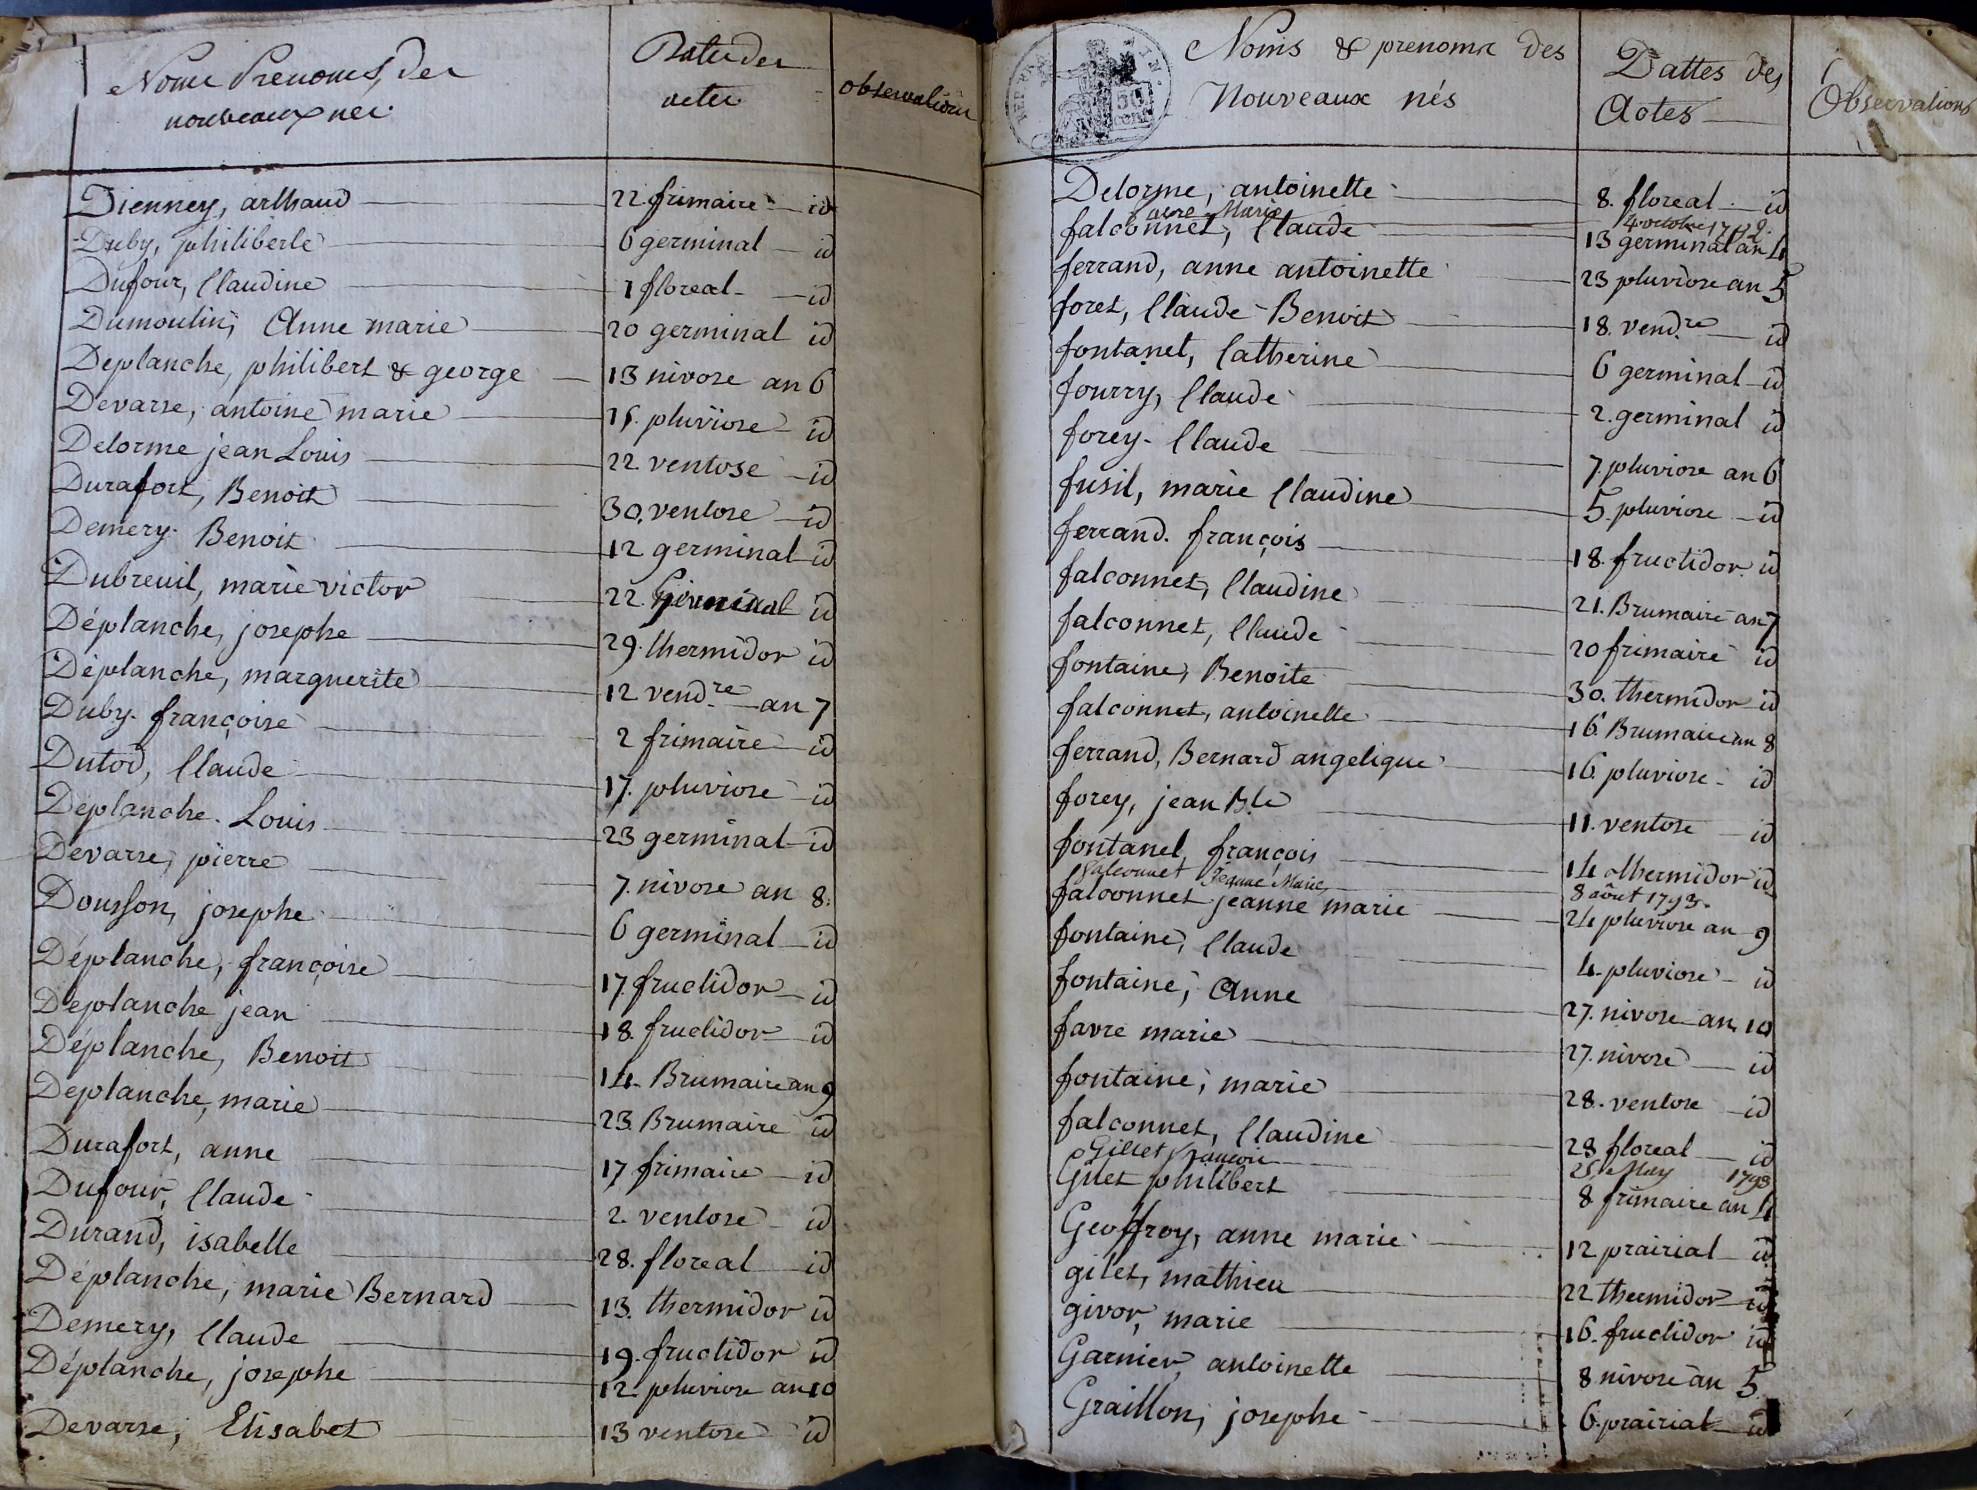 Noms Prenoms des
nouveaux nés
Dates des
actes
observations
Dienney, arthaud 22 frimaire id
Duby, philiberte 6 germinal id
Dufour, Claudine 1 floreal id
Dumoulin, Anne marie 20 germinal id
Deplanche, philibert & george 13 nivose an 6
Devarse, antoine marie 15. pluviose id
Delorme jean Louis 22. ventose id
Durafort, Benoit 30. ventose id
Demery. Benoit 12 germinal id
Dubreuil, marie victor 22. Germinal id
Déplanche, josephe 29. thermidor id
Déplanche, marguerite 12 vend.re an 7
Duby. françoise 2 frimaire id
Dutod, Claude 17. pluviose id
Déplanche. Louis 23 germinal id
Devarse, pierre 7. nivose an 8.
Dousson, josephe 6 germinal id
Déplanche, françoise 17. fructidor id
Deplanche jean 18. fructidor id
Déplanche, Benoit 14. Brumaire an 9
Deplanche, marie 23. Brumaire id
Durafort, anne 17 frimaire id
Dufour, Claude 2. ventose id
Durand, isabelle 28. floreal id
Déplanche, marie Bernard 13. thermidor id
Demery, Claude 19. fructidor id
Déplanche, josephe 12. pluviose an 10
Devarse, Elisabet 13 ventose id
Noms & prenoms des
Nouveaux nés
Dattes des
Actes
Observations
Delorme, antoinette 8. floreal id
Marie 4 octobre 1792.
falconnet, Claude 13 germinal an 4
ferrand, anne antoinette 23 pluviose an 5
foret, Claude Benoit 18. vend.re id
fontanel, Catherine 6 germinal id
fourry, Claude 2. germinal id
forey. Claude 7. pluviose an 6
fusil, marie Claudine 5. pluviose id
ferrand. françois 18. fructidor id
falconnet, Claudine 21. Brumaire an 7
falconnet, Claude 20 frimaire id
fontaine, Benoite 30. thermidor id
falconnet, antoinette 16. Brumaire an 8
ferrand, Bernard angelique 16. pluviose id
forey, jean B.te 11. ventose id
fontanel, françois 14 thermidor id
falconnet Jeanne Marie 8 aôut 1793.
falconnet jeanne marie 24 pluviose an 9
fontaine, Claude 4. pluviose id
fontaine, Anne 27. nivose an 10
favre marie 27. nivose id
fontaine, marie 28. ventose id
falconnet, Claudine 28 floreal id
Gillet francois 25 May 1793
Gilet philibert 8 frimaire an 4
Geoffroy, anne marie 12 prairial id
gilet, mathieu 22 thermidor id
givor, marie 16. fructidor id
Garnier, antoinette 8 nivose an 5
Graillon, josephe 6. prairial id